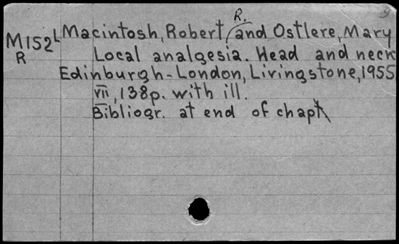 R.
M152L Macintosh, Robert and Ostlere, Mary
R Local analgesia. Head and neck
Edinburgh-London, Livingstone, 1955
VII, 138p. with ill.
Bibliogr. at end of chapt